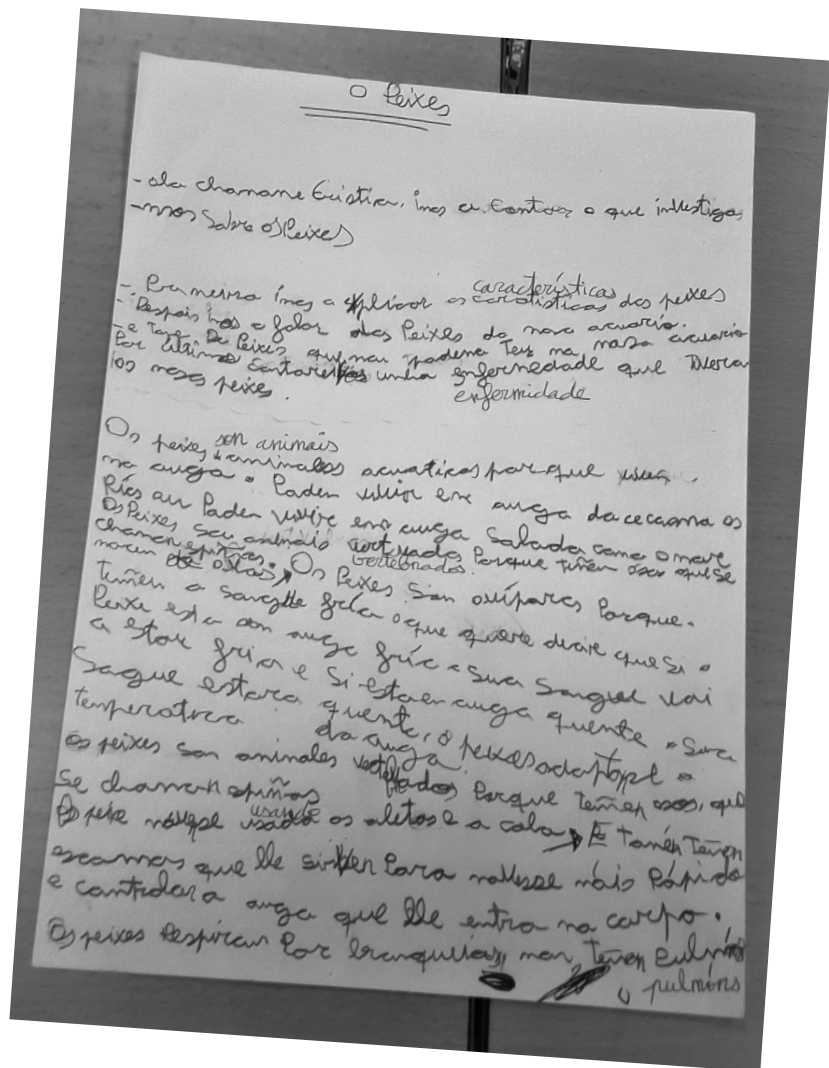 O Peixes
- ola chamame Cristina, imos a contar o que investiga
-mos Sobre os Peixes
características
- Primeiro imos a explicar as caratisticas dos peixes
- Despois imos a falar dos Peixes do noso acuario.
- e Tamén De Peixes que non podemos Ter no noso acuario
Por último Contaremos unha enfermedade que Tiveron
os nosos peixes.
enfermidade
son animais
Os peixes animales acuaticos porque viven
na auga. Poden vivir en auga doce coma os
Ríos ou Poden vivire en auga Salada como o mare
Os Peixes son animais vertebrados Porque teñen osos que se
chaman espiñas. Os Peixes Son ovíparos Porque
vertebrados
nacen de ovos
Teñen a sangue fría o que quere dicir que si o
Peixe esta con auga fría a sua sangue vai
a estar fria e si esta en auga quente a sua
Sague estara quente, o peixe adaptase a
temperatura da auga.
os peixes son animales vertebrados Porque teñen osos, que
se chaman espiñas
usando
Os peixe móvese usado as aletas e a cola E tamén Teñen
escamas que lle sirven Para moverse máis Rápido
e controlar a auga que lle entra no corpo.
Os peixes Respiran Por branquias, non Teñen Pulmóns
pulmóns